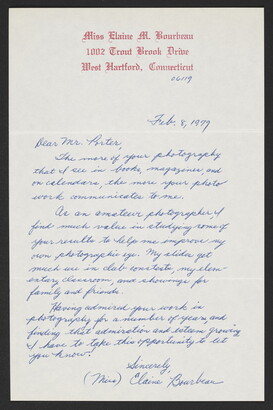 Miss Elaine M. Bourbeau
1002 Trout Brook Drive
West Hartford, Connecticut
06119
Feb. 8, 1979
Dear Mr. Porter,
The more of your photography
that I see in books, magazines and
on calendars, the more your photo
work communicates to me.
As an amateur photographer I
find much value in studying some of
your results to help me improve my
own photographic eye. My slides get
much use in club contests, my elem-
entary classroom, and showings for
family and friends.
Having admired your work in
photography for a number of years, and
finding that admiration and esteem growing
I have to take this opportunity to let
you know!
Sincerely,
(Miss) Elaine Bourbeau